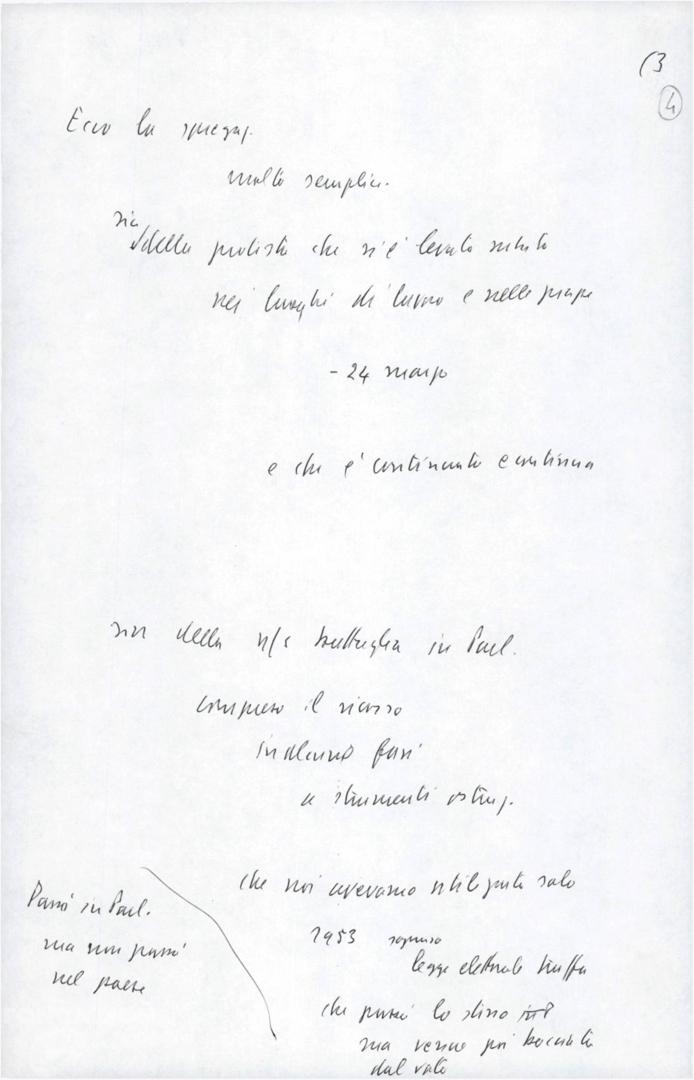 (3
4
Ecco la spiegaz.
molto semplice.
sia
della protesta che s'è levata subito
nei luoghi di lavoro e nelle piazze
- 24 marzo
e che è continuata e continua
sia della n/s battaglia in Parl.
compreso il ricorso
in alcune fasi
a strumenti ostruz.
che noi avevamo utilizzato solo
1953
legge elettorale truffa
che passò lo stesso
ma venne poi bocciata
dal voto
Passò in Parl.
ma non passò
nel paese